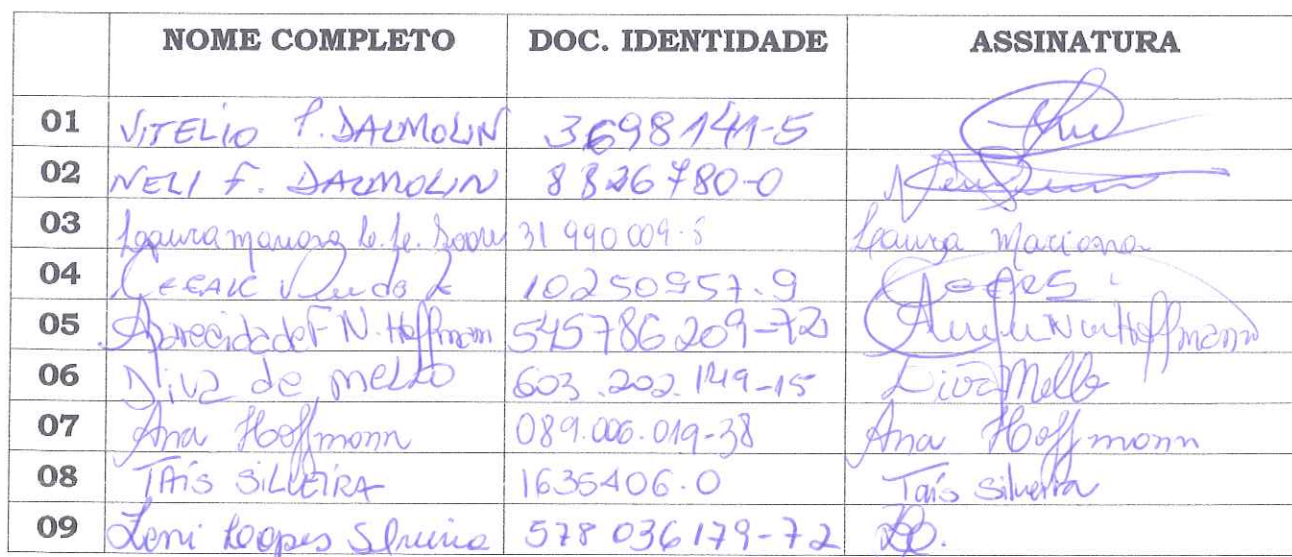 NOME COMPLETO DOC. IDENTIDADE ASSINATURA
01 VITELIO P. DALMOLIN 3698141-5
02 NELI F. DALMOLIN 8826780-0
03 Laura 31 990 009 Laura Mariana
04 10250957-9
05 Aparecida de F N. Hoffmann 545786209-72 Hoffmann
06 Diva de mello 603.202.149-15 Diva Mello
07 Ana Hoffmann 089.006.019-38 Ana Hoffmann
08 TAÍS SILVEIRA 1635406.0 Taís Silveira
09 Leni Lopes 578 036179-72